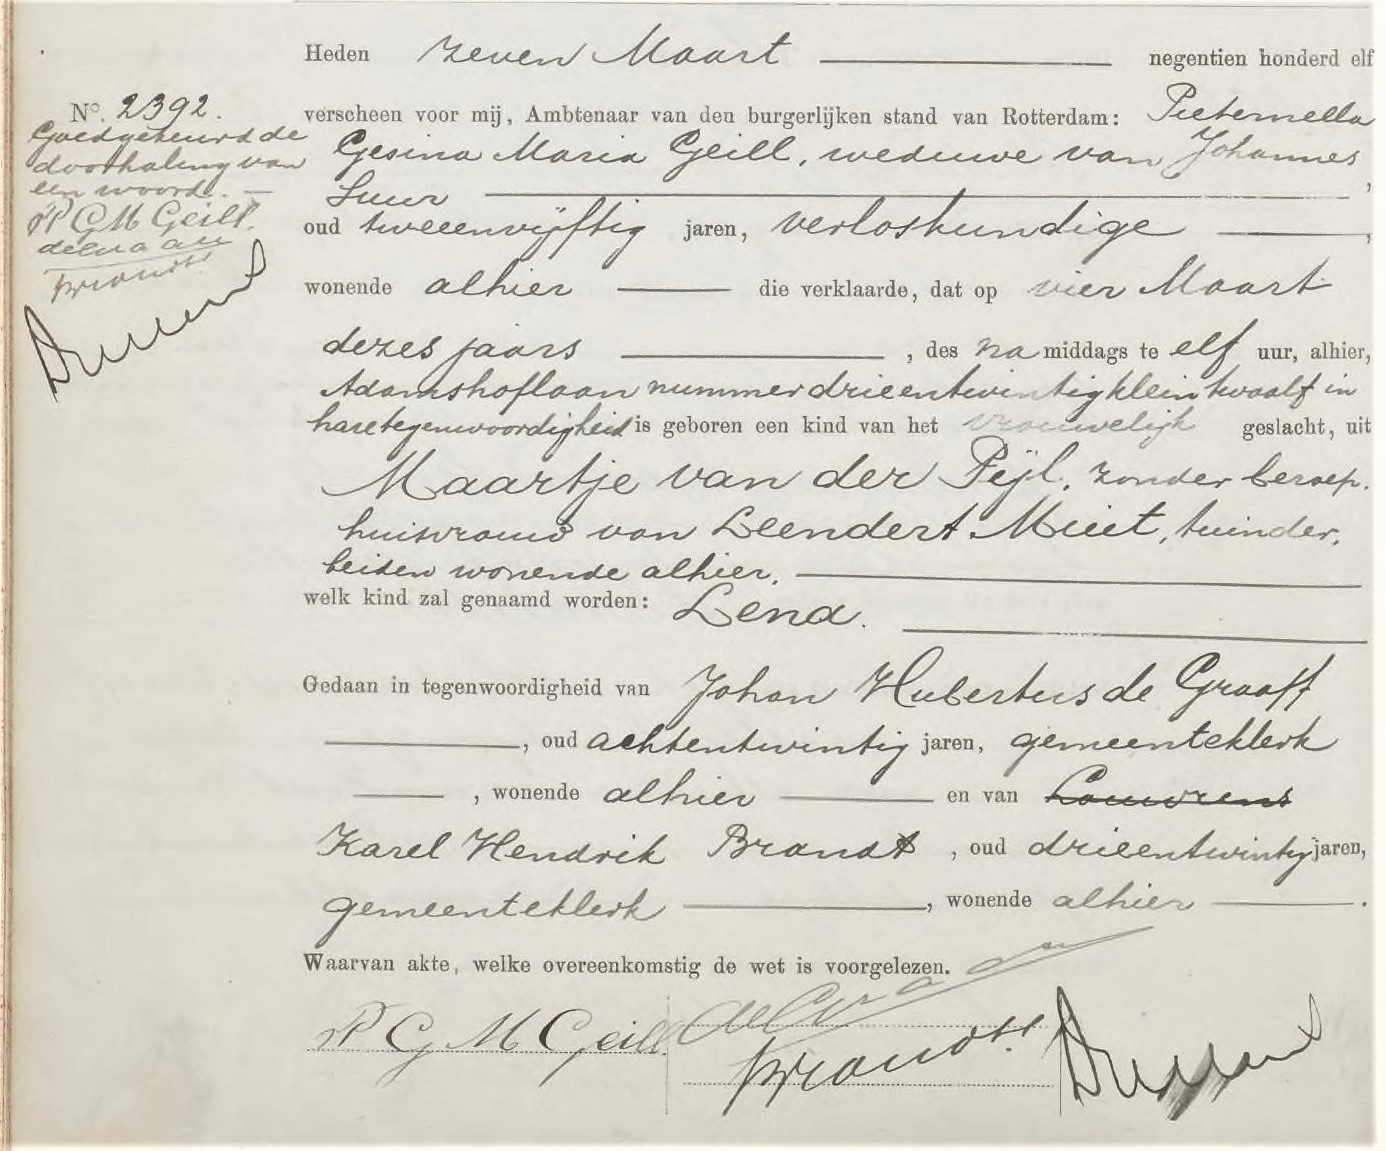 Heden zeven Maart negentien honderd elf
verscheen voor mij, Ambtenaar van den burgerlijken stand van Rotterdam: Pieternella
Gesina Maria Geill, weduwe van Johannes
Suur,
oud tweeenvijftig jaren, verloskundige,
wonende alhier die verklaarde, dat op vier Maart
dezes jaars, des na middags te elf uur, alhier,
Adamshoflaan nummer drieentwintig klein twaalf in
hare tegenwoordigheid is geboren een kind van het vrouwelijk geslacht, uit
Maartje van der Pijl, zonder beroep,
huisvrouw van Leendert Muit, tuinder,
beiden wonende alhier,
welk kind zal genaamd worden: Lena.
Gedaan in tegenwoordigheid van Johan Hubertus de Graaff
, oud achtentwintig jaren, gemeenteklerk
, wonende alhier en van Louwrens
Karel Hendrik Brandt, oud drieentwintig jaren,
gemeenteklerk, wonende alhier.
Waarvan akte, welke overeenkomstig de wet is voorgelezen.
P G M Geill.
de Graaff
Brandt
No. 2392.
Goedgekeurd de
doorhaling van
een woord.
P G M Geill.
de Graaff
Brandt